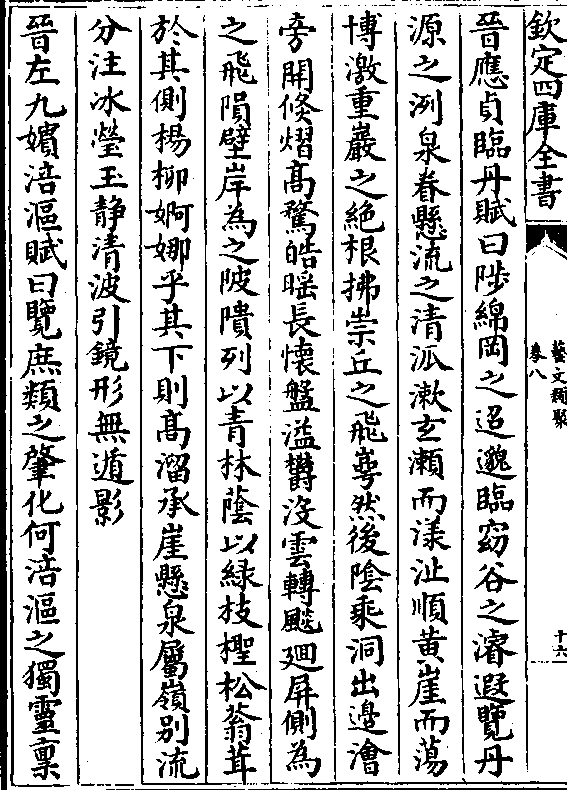 欽定四庫全書
藝文類聚
卷八
十六
晉應貞臨丹賦曰陟綿岡之迢邈臨窈谷之濬遐覽丹
源之洌泉眷懸流之清泒漱玄瀨而漾沚順黃崖而蕩
博激重巖之絶根拂崇丘之飛崿然後陰乘洞出邉澮
旁開倏熠髙騖皓暚長懷盤溢欝沒雲轉飈廻屏側為
之飛隕壁岸為之陂隤列以青林蔭以緑枝檉松蓊茸
於其側楊柳婀娜乎其下則髙溜承崖懸泉屬嶺别流
分注冰瑩玉静清波引鏡形無遁影
晉左九嬪涪漚賦曰覽庶類之肇化何涪漚之獨靈稟